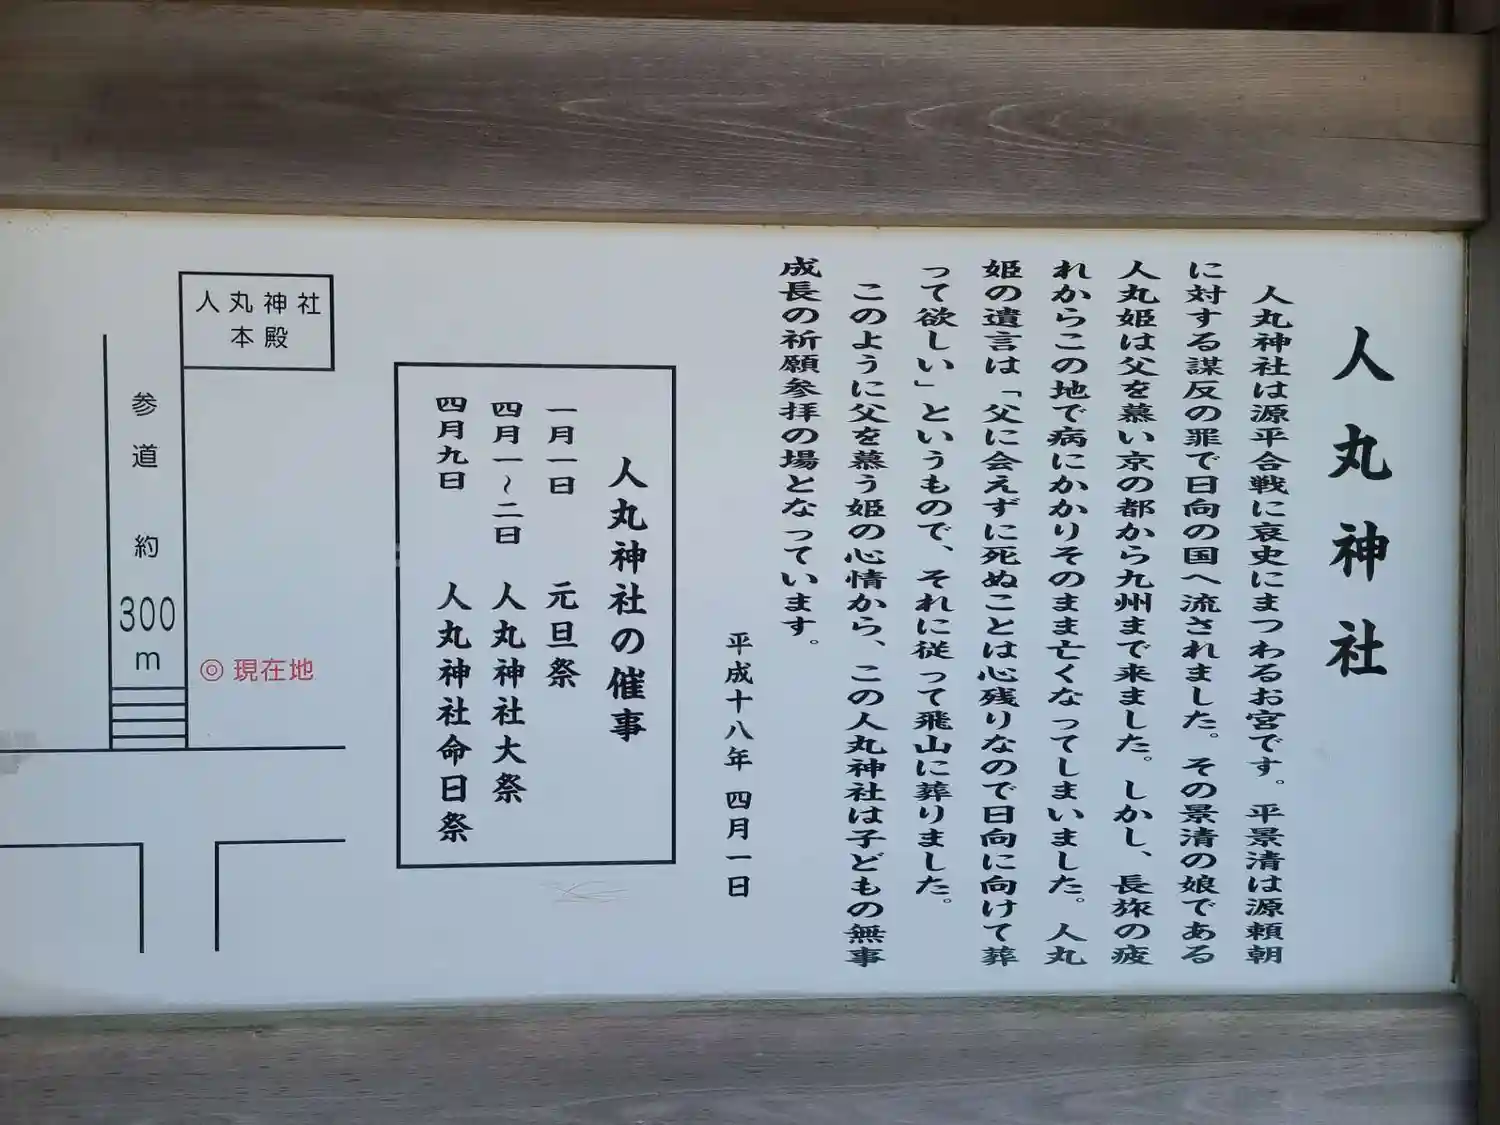 人丸神社
人丸神社は源平合戦に哀史にまつわるお宮です。平景清は源頼朝
に対する謀反の罪で日向の国へ流されました。その景清の娘である
人丸姫は父を慕い京の都から九州まで来ました。しかし、長旅の疲
れからこの地で病にかかりそのまま亡くなってしまいました。人丸
姫の遺言は「父に会えずに死ぬことは心残りなので日向に向けて葬
って欲しい」というもので、それに従って飛山に葬りました。
このように父を慕う姫の心情から、この人丸神社は子どもの無事
成長の祈願参拝の場となっています。
平成十八年 四月一日
人丸神社の催事
一月一日 元旦祭
四月一~二日 人丸神社大祭
四月九日 人丸神社命日祭
人丸神社
本殿
参道 約300m
◎現在地